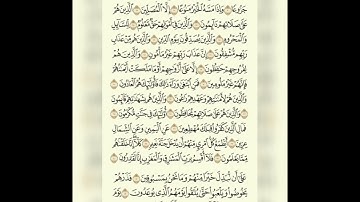 جَزُوعًا ۝ وَإِذَا مَسَّهُ الْخَيْرُ مَنُوعًا ۝ إِلَّا الْمُصَلِّينَ ۝ الَّذِينَ هُمْ
عَلَىٰ صَلَاتِهِمْ دَائِمُونَ ۝ وَالَّذِينَ فِي أَمْوَالِهِمْ حَقٌّ مَّعْلُومٌ ۝ لِّلسَّائِلِ
وَالْمَحْرُومِ ۝ وَالَّذِينَ يُصَدِّقُونَ بِيَوْمِ الدِّينِ ۝ وَالَّذِينَ هُم مِّنْ عَذَابِ
رَبِّهِم مُّشْفِقُونَ ۝ إِنَّ عَذَابَ رَبِّهِمْ غَيْرُ مَأْمُونٍ ۝ وَالَّذِينَ هُمْ
لِفُرُوجِهِمْ حَافِظُونَ ۝ إِلَّا عَلَىٰ أَزْوَاجِهِمْ أَوْ مَا مَلَكَتْ أَيْمَانُهُمْ
فَإِنَّهُمْ غَيْرُ مَلُومِينَ ۝ فَمَنِ ابْتَغَىٰ وَرَاءَ ذَٰلِكَ فَأُولَٰئِكَ هُمُ الْعَادُونَ ۝
وَالَّذِينَ هُمْ لِأَمَانَاتِهِمْ وَعَهْدِهِمْ رَاعُونَ ۝ وَالَّذِينَ هُم بِشَهَادَاتِهِمْ قَائِمُونَ
۝ وَالَّذِينَ هُمْ عَلَىٰ صَلَاتِهِمْ يُحَافِظُونَ ۝ أُولَٰئِكَ فِي جَنَّاتٍ مُّكْرَمُونَ
۝ فَمَالِ الَّذِينَ كَفَرُوا قِبَلَكَ مُهْطِعِينَ ۝ عَنِ الْيَمِينِ وَعَنِ الشِّمَالِ
عِزِينَ ۝ أَيَطْمَعُ كُلُّ امْرِئٍ مِّنْهُمْ أَن يُدْخَلَ جَنَّةَ نَعِيمٍ ۝ كَلَّا إِنَّا خَلَقْنَاهُم
مِّمَّا يَعْلَمُونَ ۝ فَلَا أُقْسِمُ بِرَبِّ الْمَشَارِقِ وَالْمَغَارِبِ إِنَّا لَقَادِرُونَ ۝
عَلَىٰ أَن نُّبَدِّلَ خَيْرًا مِّنْهُمْ وَمَا نَحْنُ بِمَسْبُوقِينَ ۝ فَذَرْهُمْ
يَخُوضُوا وَيَلْعَبُوا حَتَّىٰ يُلَاقُوا يَوْمَهُمُ الَّذِي يُوعَدُونَ ۝ يَوْمَ